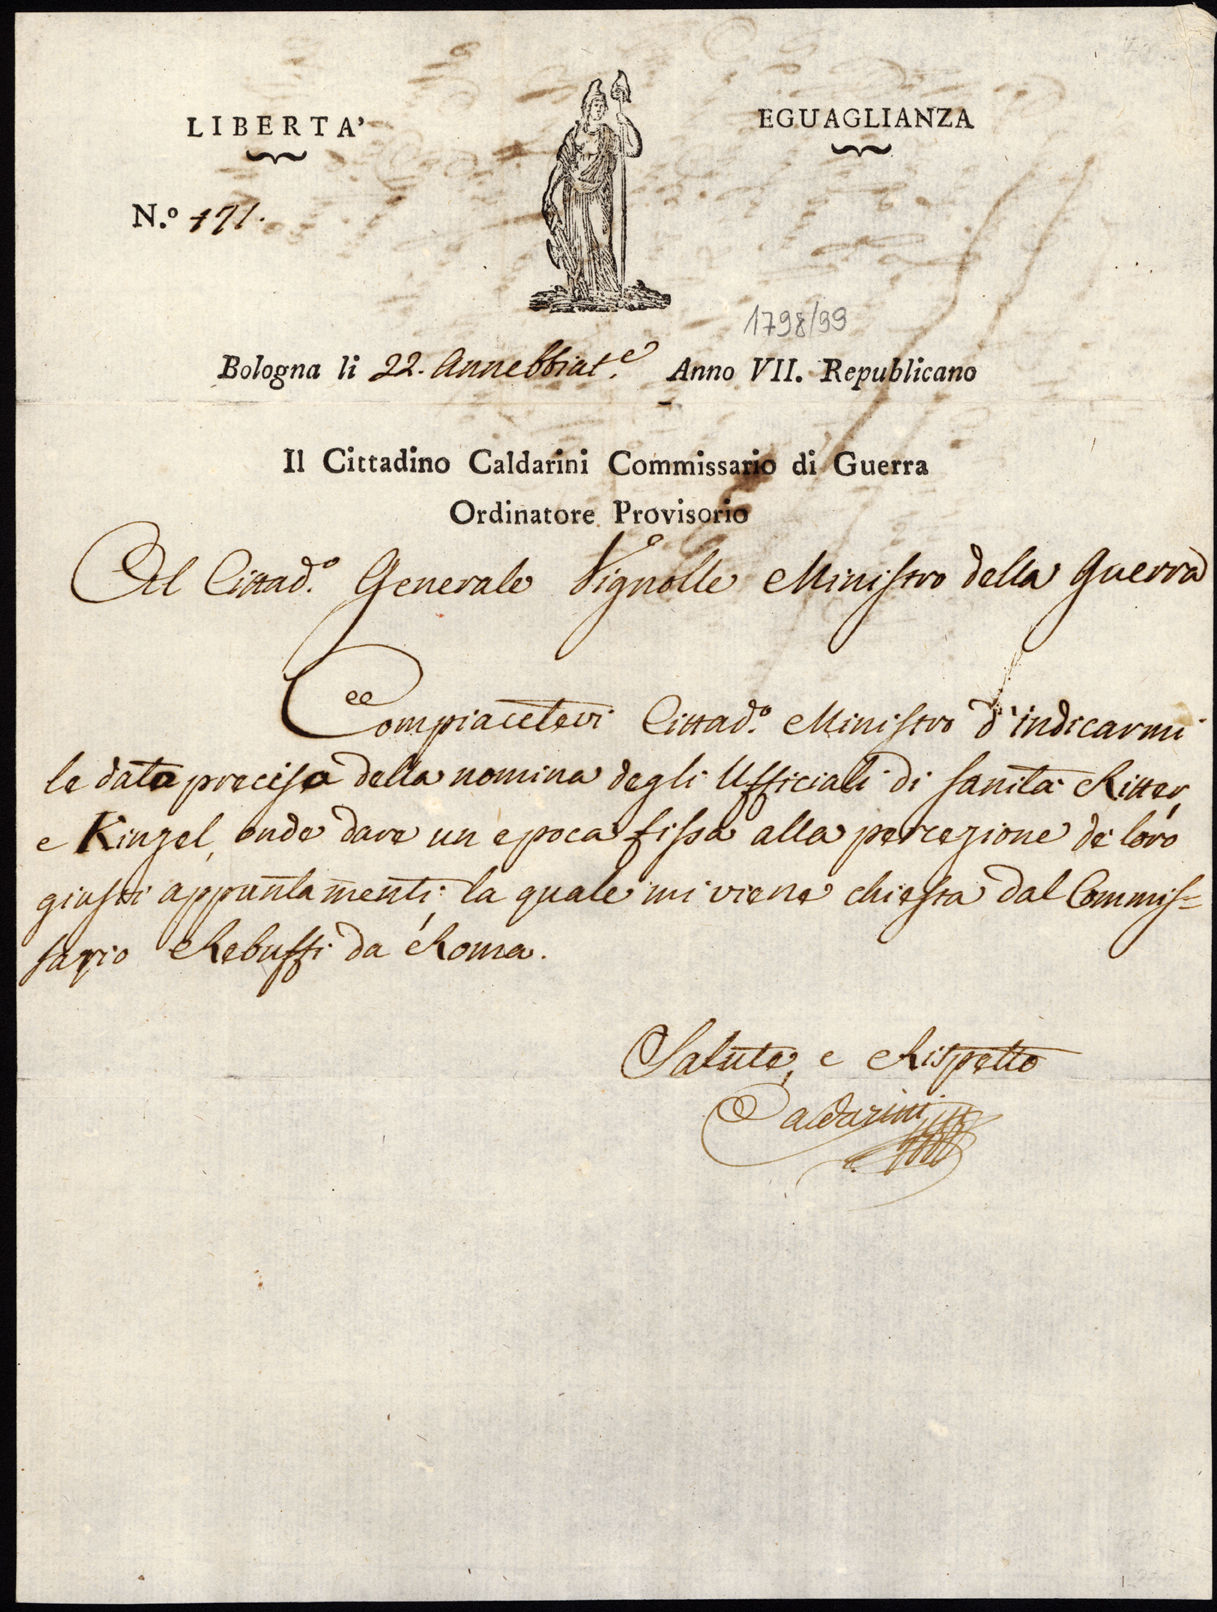 LIBERTA' EGUAGLIANZA
N.º 171.
1798/99
Bologna li 22. Annebbiat.e Anno VII. Republicano
Il Cittadino Caldarini Commissario di Guerra
Ordinatore Provisorio
Al Cittad.º Generale Vignolle Ministro della Guerra
Compiacetevi Cittad.º Ministro d'indicarmi
le data precisa della nomina degli Ufficiali di sanità Ritter,
e Kinzel, onde dare un epoca fissa alla percezione de loro
giusti appuntamenti, la quale mi viene chiesta dal Commis=
sario Rebuffi da Roma.
Salute, e Rispetto
Caldarini